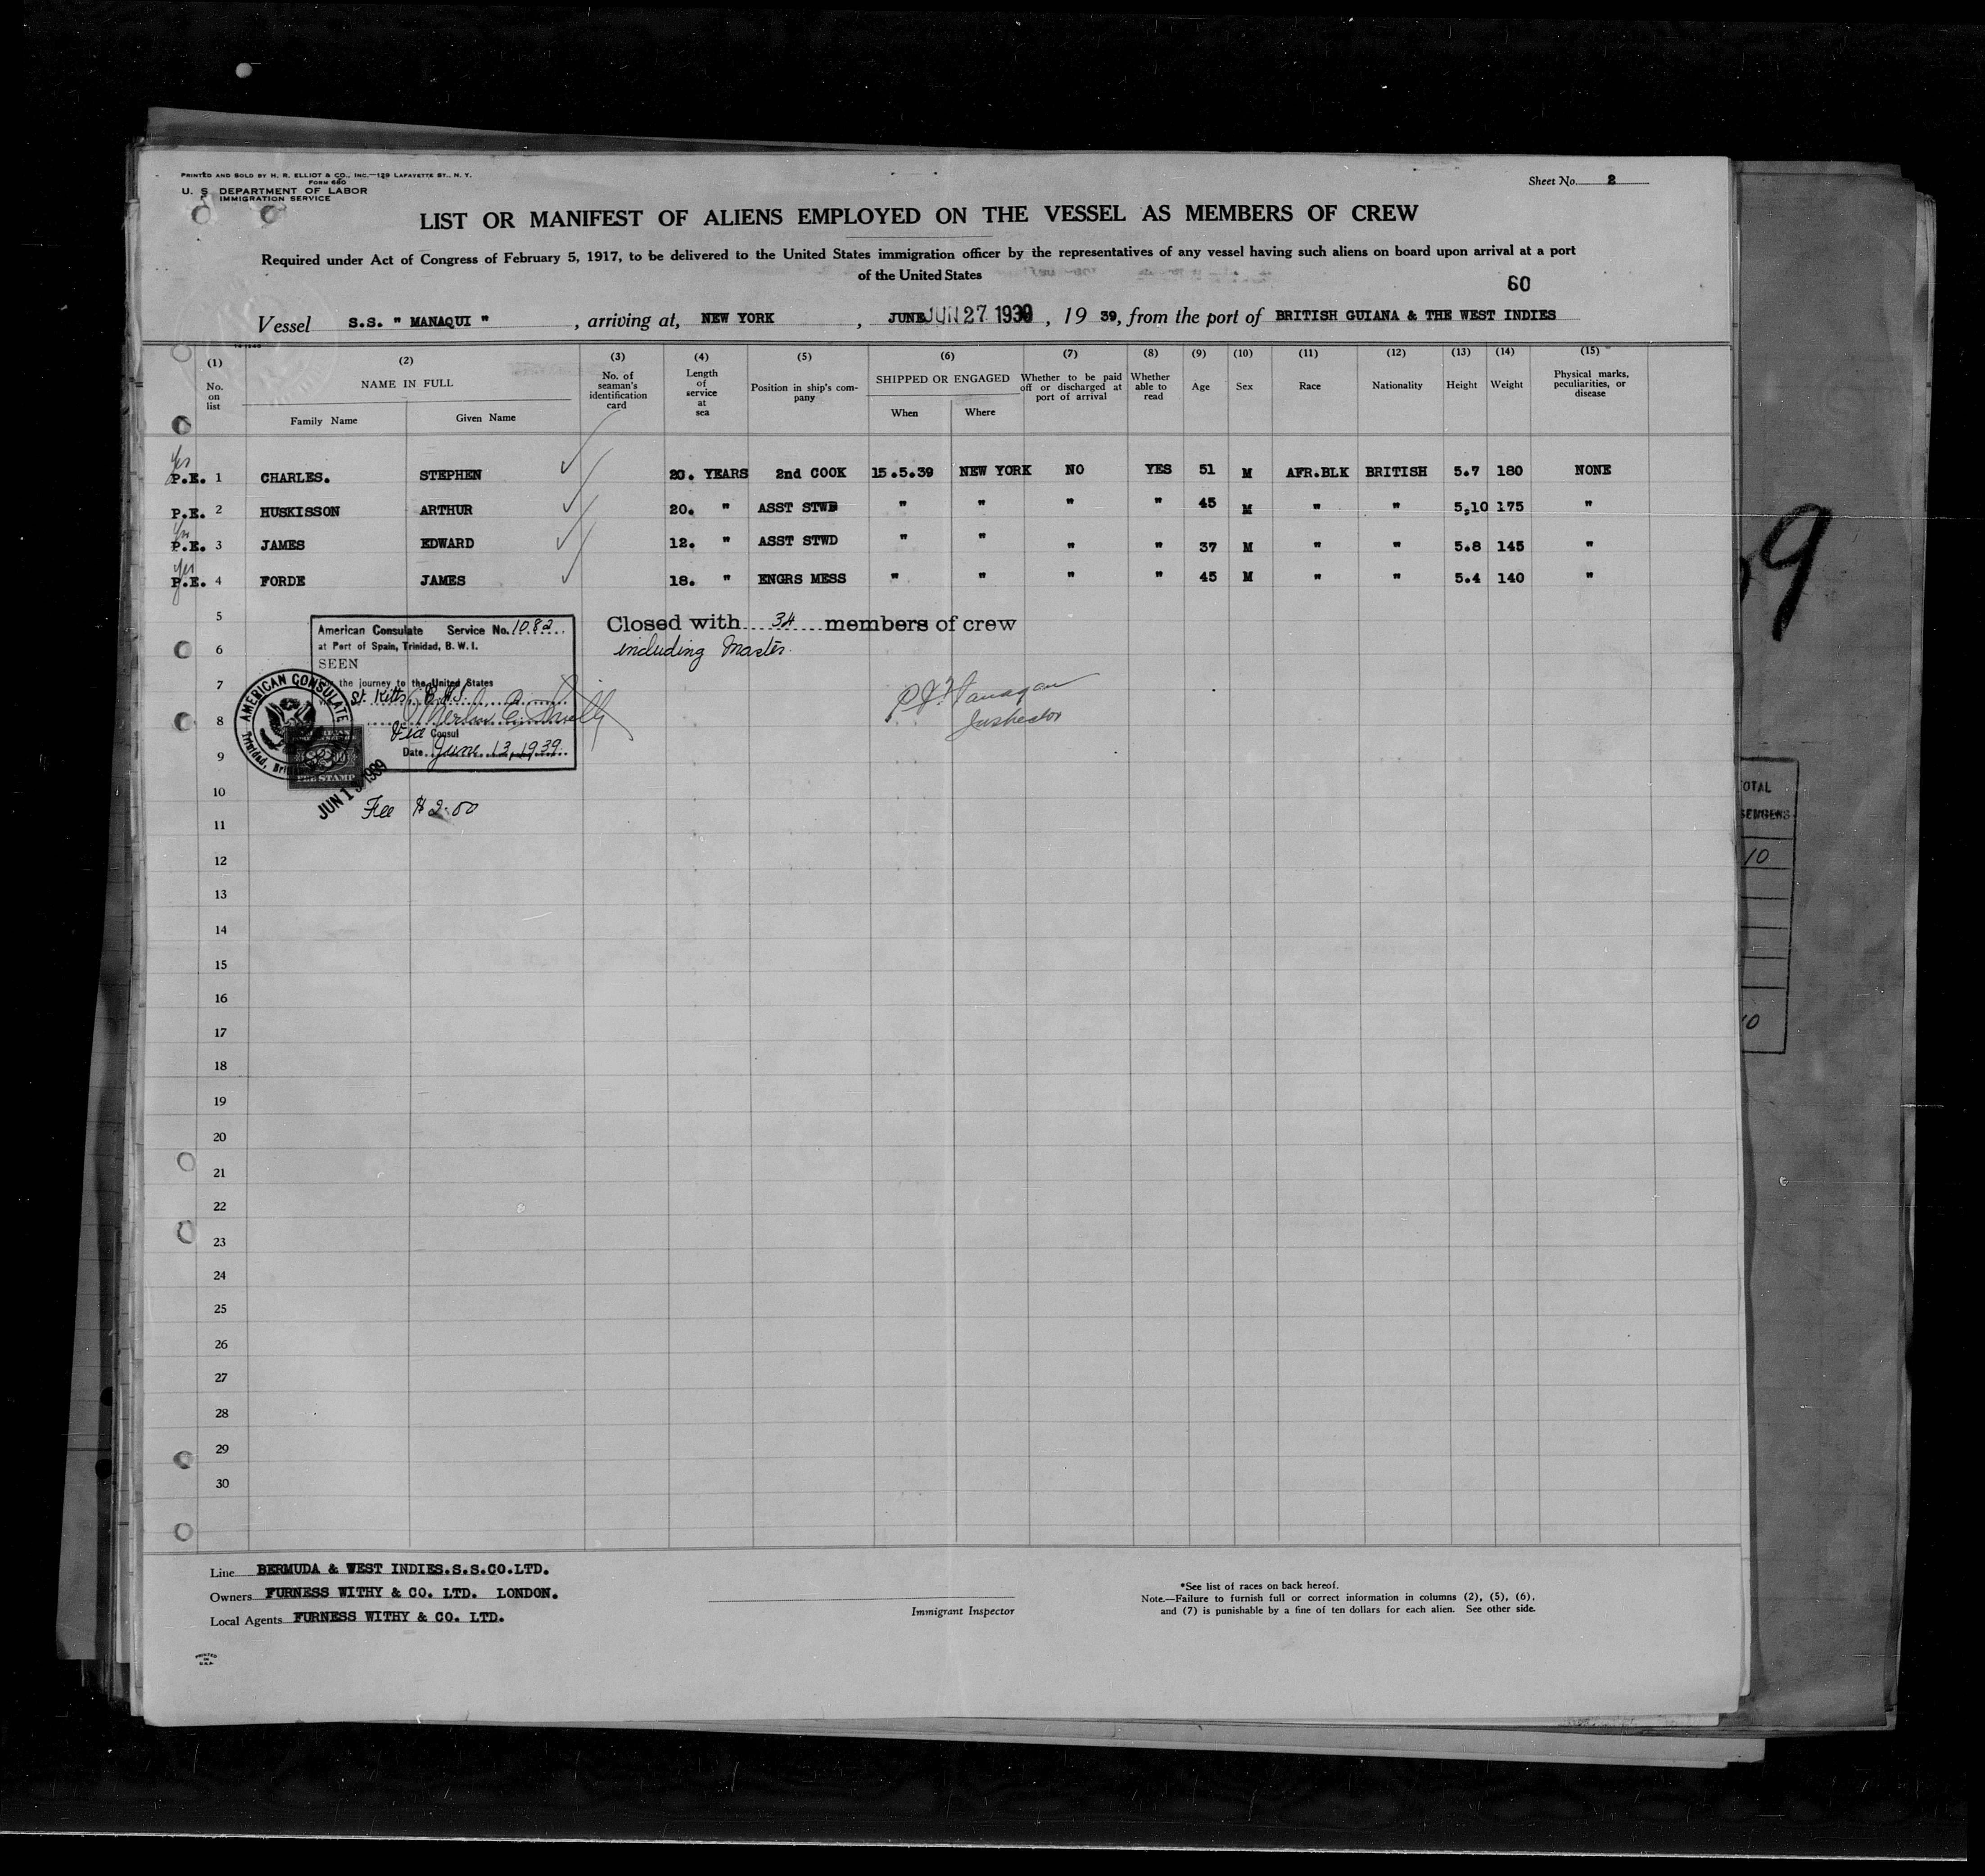 PRINTED AND SOLD BY H. R. ELLIOT & CO., INC.—129 LAFAYETTE ST., N. Y.
FORM 680
U. S. DEPARTMENT OF LABOR
IMMIGRATION SERVICE
Sheet No. 2
LIST OR MANIFEST OF ALIENS EMPLOYED ON THE VESSEL AS MEMBERS OF CREW
Required under Act of Congress of February 5, 1917, to be delivered to the United States immigration officer by the representatives of any vessel having such aliens on board upon arrival at a port
of the United States
60
Vessel S.S. " MANAQUI " , arriving at, NEW YORK , JUNE JUN 27 1939 , 19 39, from the port of BRITISH GUIANA & THE WEST INDIES
(1) (2) (3) (4) (5) (6) (7) (8) (9) (10) (11) (12) (13) (14) (15)
No. on list NAME IN FULL Family Name Given Name No. of seaman's identification card Length of service at sea Position in ship's company SHIPPED OR ENGAGED When Where Whether to be paid off or discharged at port of arrival Whether able to read Age Sex Race Nationality Height Weight Physical marks, peculiarities, or disease
yes
P.E. 1 CHARLES. STEPHEN 20. YEARS 2nd COOK 15.5.39 NEW YORK NO YES 51 M AFR.BLK BRITISH 5.7 180 NONE
P.E. 2 HUSKISSON ARTHUR 20. " ASST STWD " " " " 45 M " " 5,10 175 "
yes
P.E. 3 JAMES EDWARD 12. " ASST STWD " " " " 37 M " " 5.8 145 "
yes
P.E. 4 FORDE JAMES 18. " ENGRS MESS " " " " 45 M " " 5.4 140 "
5
Closed with 34 members of crew
including Master.
American Consulate Service No. 1082
at Port of Spain, Trinidad, B. W. I.
SEEN
the journey to the United States
St. Kitts, B.W.I.
Vice Consul
Date June 13, 1939
AMERICAN CONSULATE
Trinidad,
FEE STAMP
JUN 13 1939
Fee $2.00
P J Flanagan
Inspector
6
7
8
9
10
11
12
13
14
15
16
17
18
19
20
21
22
23
24
25
26
27
28
29
30
OTAL
SENGERS
10
10
9
Line BERMUDA & WEST INDIES.S.S.CO.LTD.
Owners FURNESS WITHY & CO. LTD. LONDON.
Local Agents FURNESS WITHY & CO. LTD.
Immigrant Inspector
*See list of races on back hereof.
Note.—Failure to furnish full or correct information in columns (2), (5), (6),
and (7) is punishable by a fine of ten dollars for each alien. See other side.
PRINTED
IN
U.S.A.